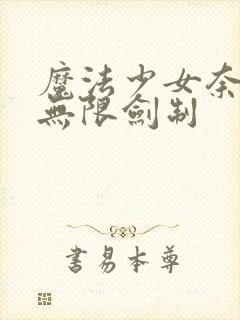 魔法少女奈
無限劍制
書易本尊